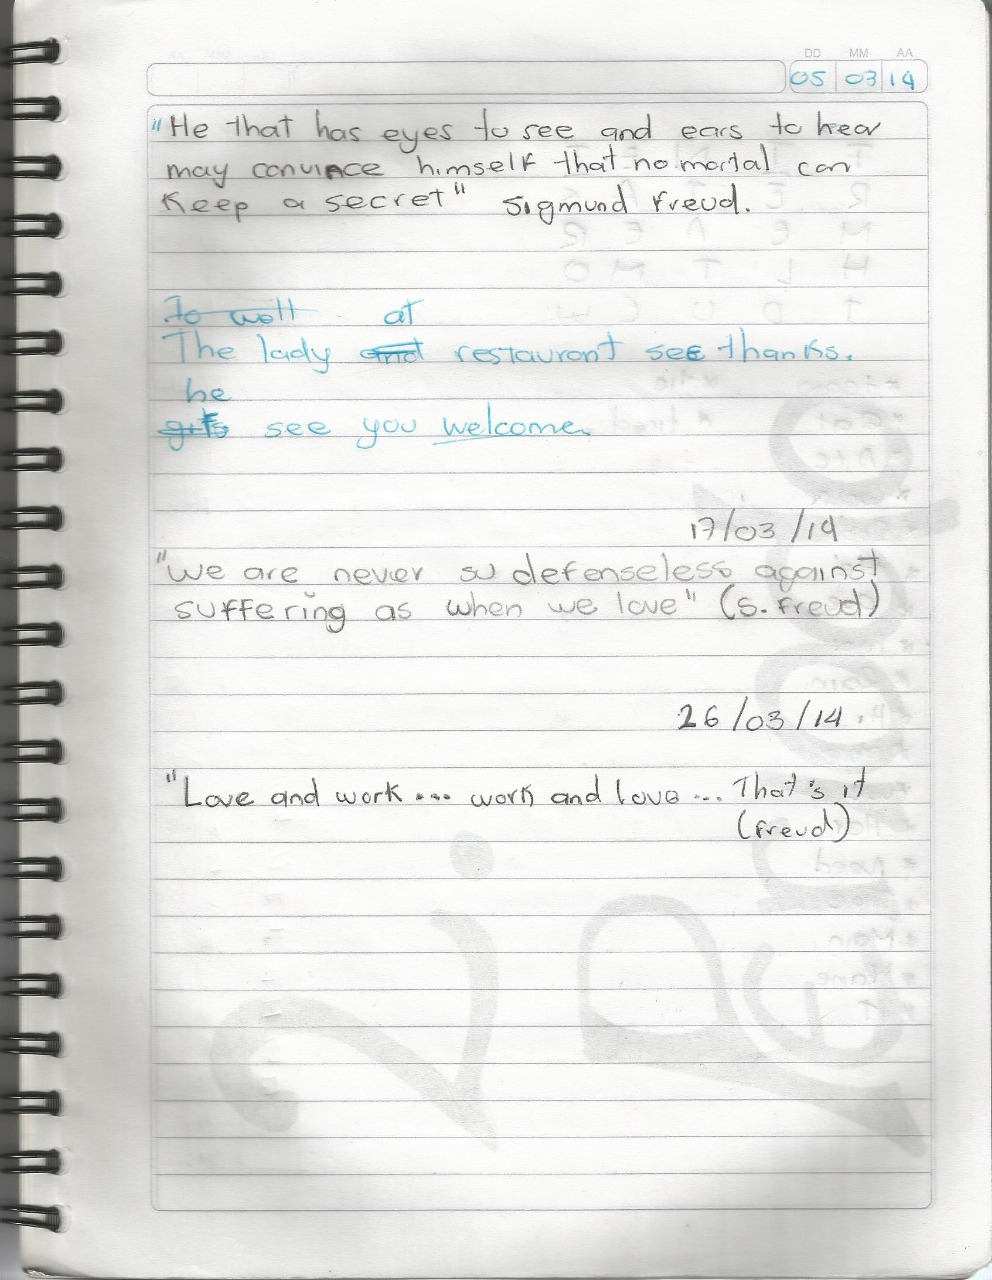 DD MM AA
05 03 14
"He that has eyes to see and ears to hear
may convince himself that no mortal can
Keep a secret" Sigmund Freud.
at
The lady and restaurant see thanks.
he
see you welcome.
17/03/14
"we are never so defenseless against
suffering as when we love" (S. Freud)
26/03/14
"Love and work ... work and love ... That's it
(Freud)